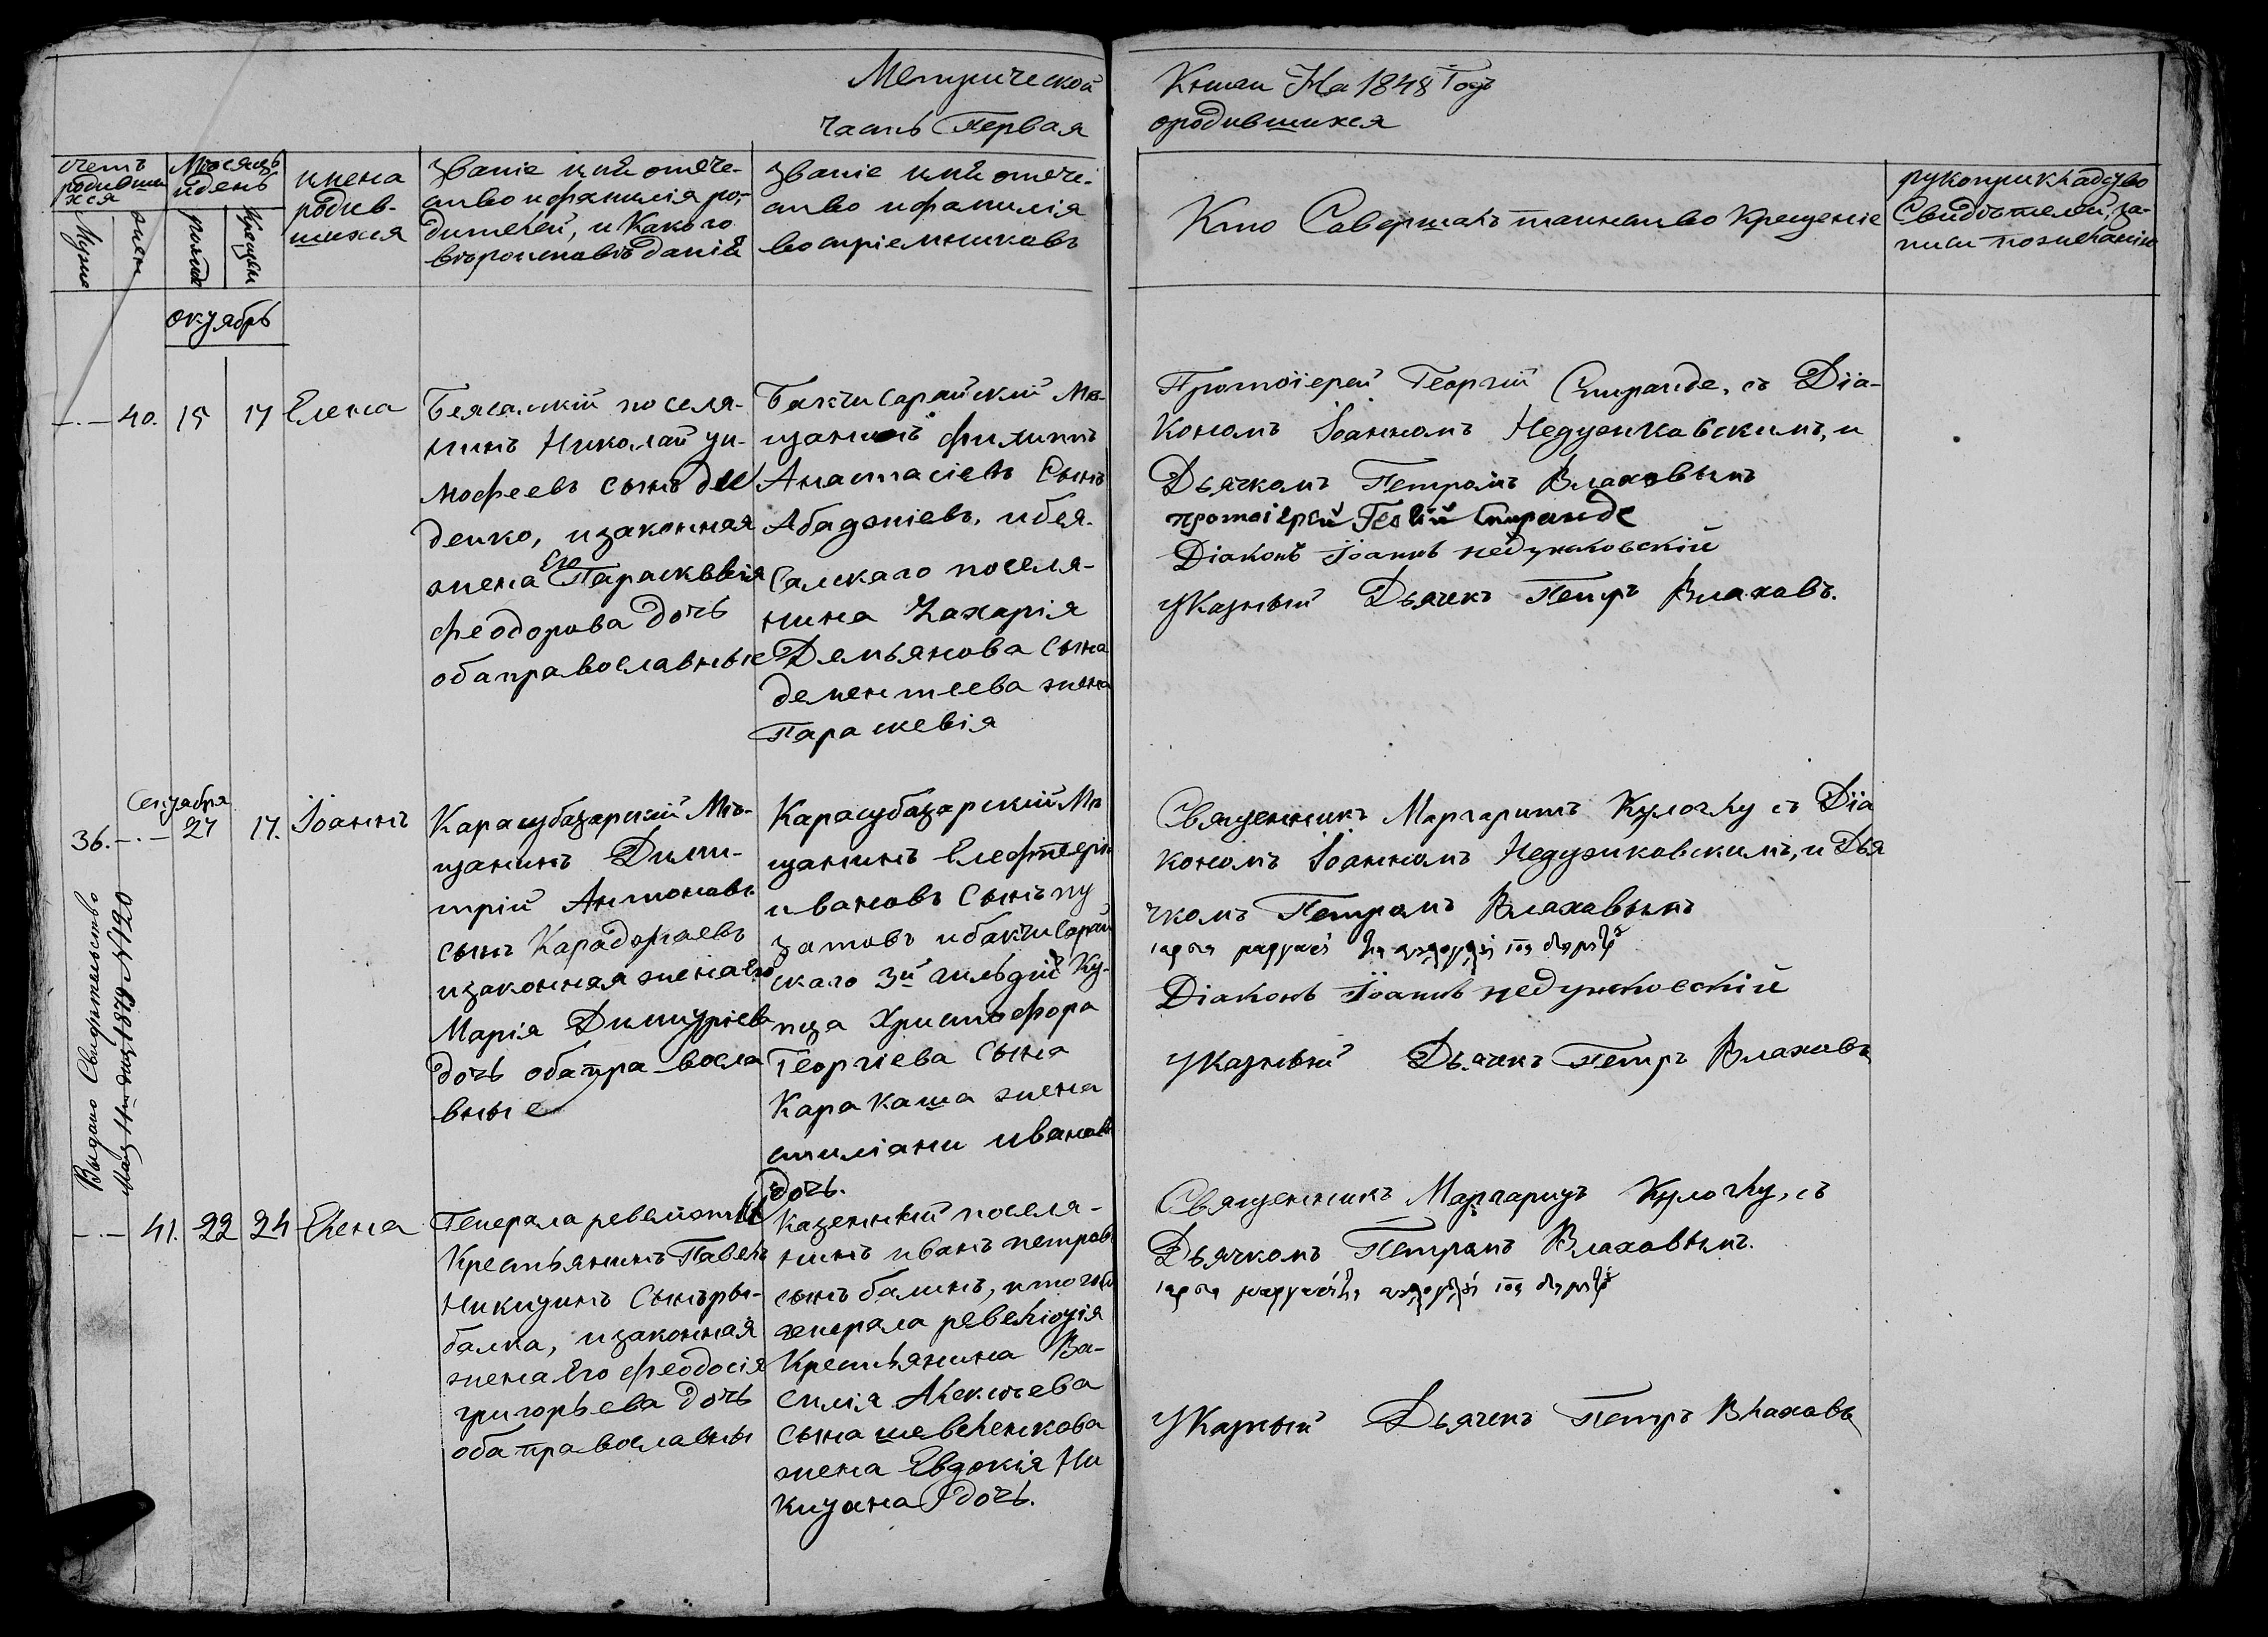 Метрической
часть Первая
Книги На 1848 Годъ
ородившихся
счетъ родивши хся
Мужес
женс
Мѣсяцъ идень
рожден
Крещен
имена родив- шихся
званіе имя отече-
ство ифамилія ро-
дителей, и Какого
вѣроисповѣданія
званіе имя отече-
ство ифамилія
воспріемниковъ
Кто Совершалъ таинство Крещеніе
рукоприкладство
Свидѣтелей за-
писи пожеланію
октябрь
40. 15 17 Елена
Беясалскій поселя-
нинъ Николай ти-
мофеевъ сынъ
денко, изаконная
жена Его Параскевія
феодорова дочь
обаправославные
Бахчисарайскій Мѣ-
щанинъ филиппъ
Анастасіевъ Сынъ
Абаджіевъ, ибея-
Салскаго поселя-
нина Захарія
Демьянова Сына
дементеева жена
Параскевія
Протоіерей Георгій Спиранде, съ Діа-
Кономъ Іоанномъ Недужковскимъ, и
Дьячкомъ Петромъ Влаховымъ
протоіерей Спиранде
Діаконъ Іоаннъ недужковскій
Указный Дьячек Петръ Влаховъ.
Сентября
36. 27 17. Іоаннъ
Карасубазарскій Мѣ-
щанинъ Дими-
трій Антоновъ
сынъ Караджаевъ
изаконная жена Его
Марія Димитріева
дочь обаправосла
вные
Карасубазарскій Мѣ
щанинъ Елефтерій
ивановъ Сынъ пу
затовъ ибахчисарай
скаго 3й гильдій Ку-
пца Христофора
Георгіева Сына
Каракаша жена
стиліани иванова
Дочь.
Священникъ Маргаритъ Кулочку съ Діа
кономъ Іоанномъ Недужковскимъ, и Дья
чкомъ Петромъ Влаховымъ
Діаконъ Іоаннъ недужковскій
Указный Дьячекъ Петръ Влаховъ
Выдано Свидѣтельство
1879 N 120
41. 22 24 Елена
Генерала
Крестьянинъ Павелъ
Никитинъ Сынъ ры-
балка, изаконная
жена Его феодосія
григорьева дочь
оба православны
Казенный поселя-
нинъ иванъ петровъ
сынъ балинъ, итогожъ
генерала ревеліотія
Крестьянина Ва-
силія Алексѣева
сына шевеленкова
жена Евдокія Ни
китина Дочь.
Священникъ Маргаритъ Кулочку, съ
Дьячкомъ Петромъ Влаховымъ.
Указный Дьячекъ Петръ Влаховъ